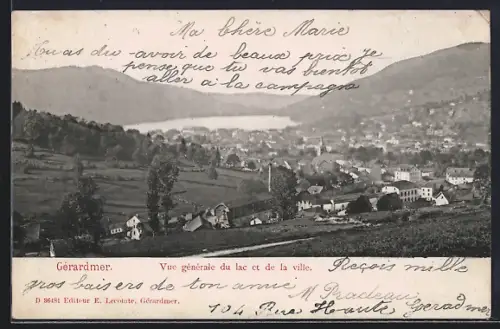 Ma Chère Marie
tu as du avoir de beaux prix je
pense que tu vas bientot
aller a la campagne
Gérardmer. Vue générale du lac et de la ville.
Reçois mille
gros baisers de ton amie
D 86481 Editeur E. Lecomte, Gérardmer.
M Pradeau
104 Rue Haute Geradmer